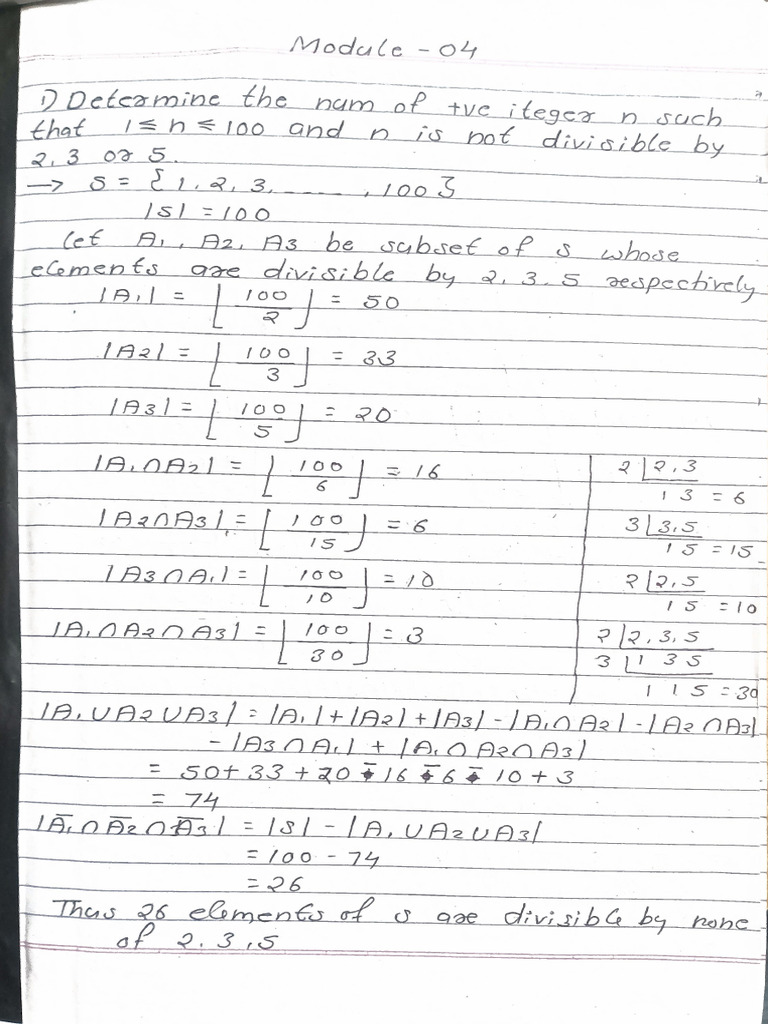 Module - 04
1) Determine the num of +ve iteger n such
that 1 ≤ n ≤ 100 and n is not divisible by
2, 3 or 5.
→ S = {1, 2, 3, ------, 100}
|S| = 100
Let A1, A2, A3 be subset of s whose
elements are divisible by 2, 3, 5 respectively
|A1| = ⌊100/2⌋ = 50
|A2| = ⌊100/3⌋ = 33
|A3| = ⌊100/5⌋ = 20
|A1∩A2| = ⌊100/6⌋ = 16
2 | 2, 3
1 3 = 6
|A2∩A3| = ⌊100/15⌋ = 6
3 | 3, 5
1 5 = 15
|A3∩A1| = ⌊100/10⌋ = 10
2 | 2, 5
1 5 = 10
|A1∩A2∩A3| = ⌊100/30⌋ = 3
2 | 2, 3, 5
3 | 1 3 5
1 1 5 = 30
|A1∪A2∪A3| = |A1| + |A2| + |A3| - |A1∩A2| - |A2∩A3|
- |A3∩A1| + |A1∩A2∩A3|
= 50 + 33 + 20 - 16 - 6 - 10 + 3
= 74
|A̅1∩A̅2∩A̅3| = |S| - |A1∪A2∪A3|
= 100 - 74
= 26
Thus 26 elements of s are divisible by none
of 2, 3, 5